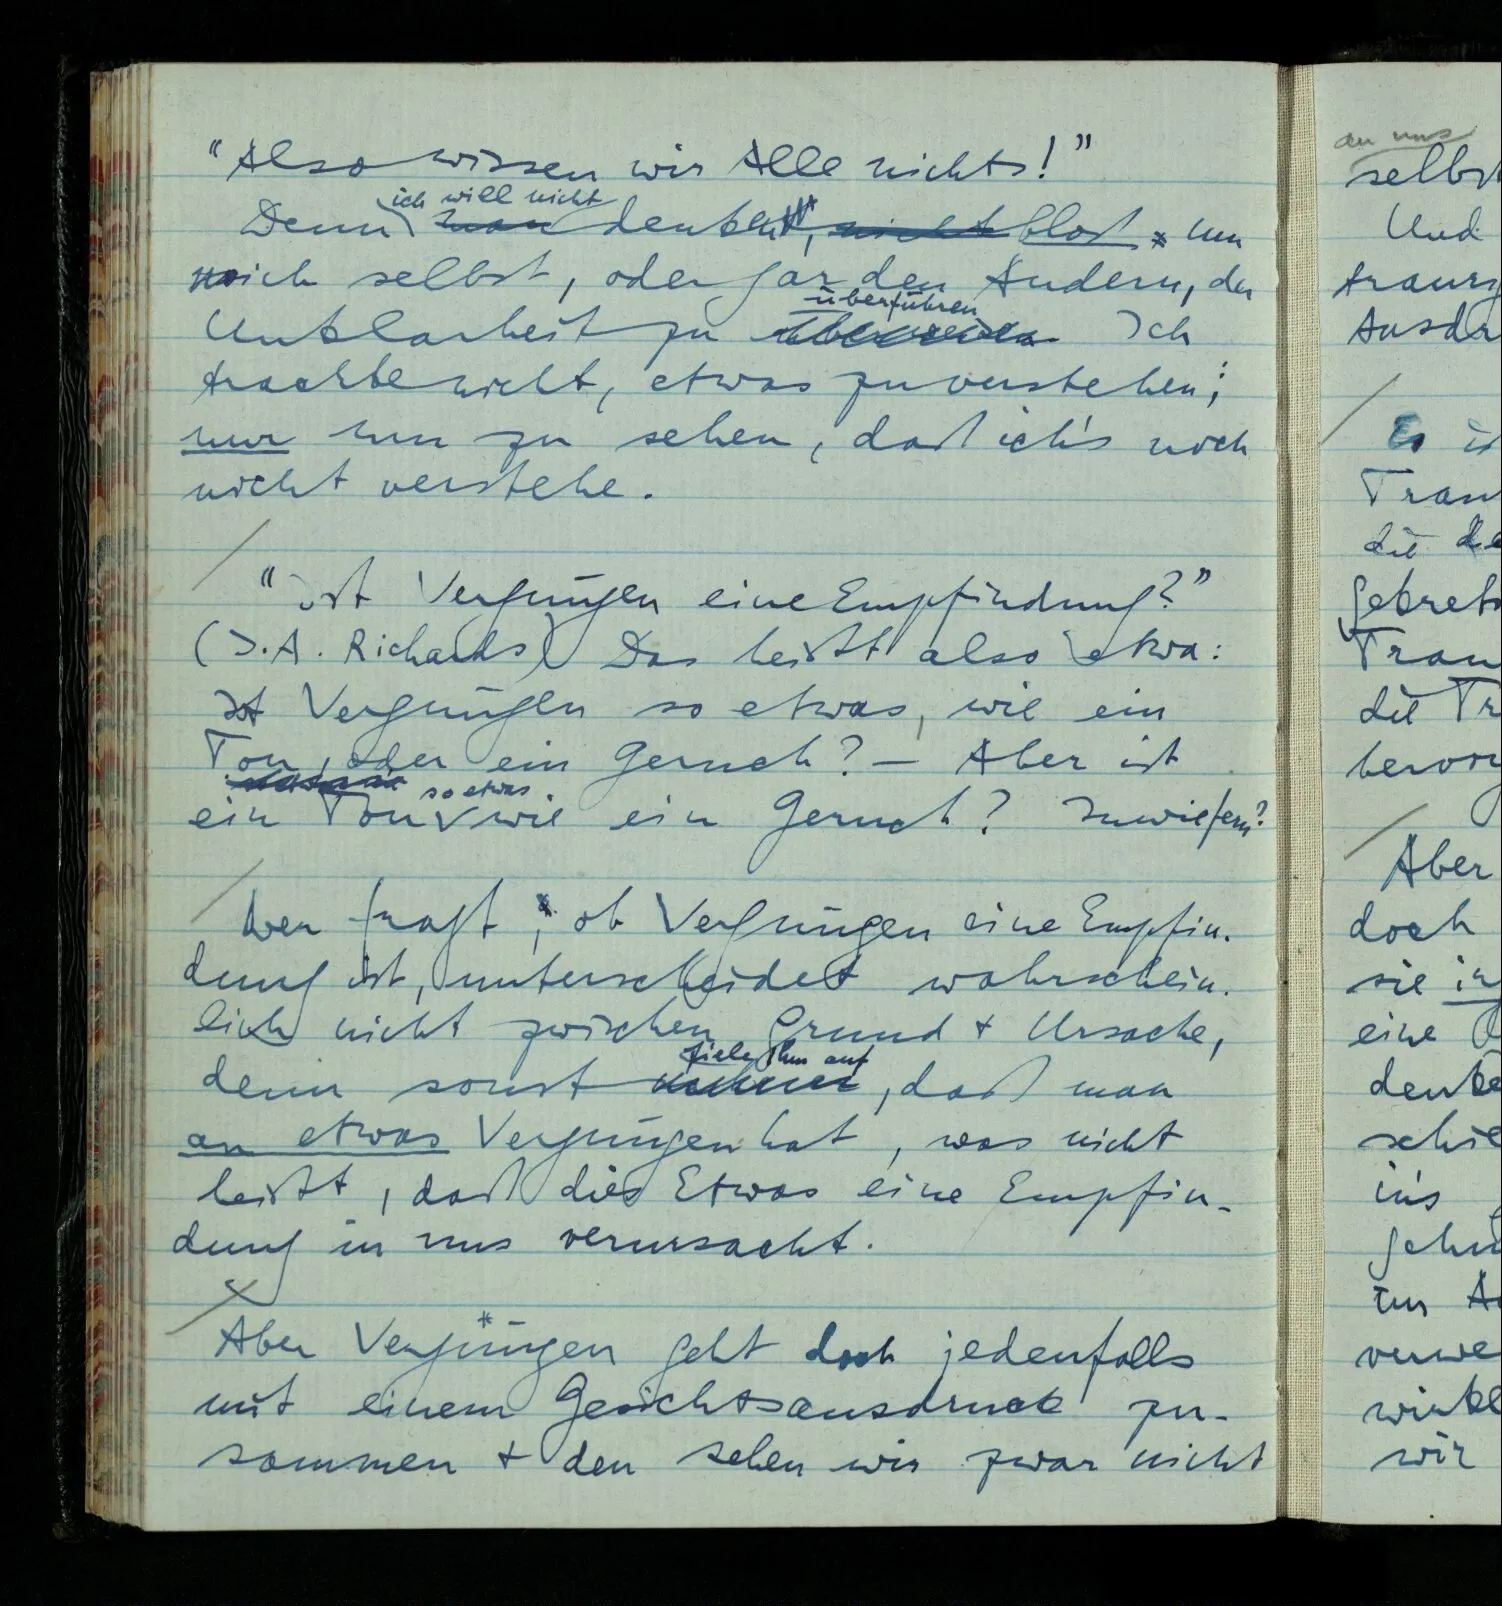 "Also wissen wir Alle nichts!"
ich will nicht
Denn man denken, nicht bloß um
mich selbst, oder gar den Andern, der
überführen
Unklarheit zu Ich
trachte nicht, etwas zu verstehen;
nur um zu sehen, daß ich's noch
nicht verstehe.
"Ist Vergnügen eine Empfindung?"
(I.A. Richards) Das heißt also etwa:
Ist Vergnügen so etwas, wie ein
Ton, oder ein Geruch? – Aber ist
so etwas
ein Ton wie ein Geruch? Inwiefern?
Wer fragt, ob Vergnügen eine Empfin-
dung ist, unterscheidet wahrschein-
lich nicht zwischen Grund + Ursache,
fiele ihm auf
denn sonst, daß man
an etwas Vergnügen hat, was nicht
heißt, daß dies Etwas eine Empfin-
dung in uns verursacht.
Aber Vergnügen geht doch jedenfalls
mit einem Gesichtsausdruck zu-
sammen + den sehen wir zwar nicht
an uns
selbst
Und
traurig
Ausdr
Es is
Trau
die de
gebrets
Trau
die Tr
hervor
Aber
doch
sie in
eine
denke
schie
in's
gehu
zur
verwe
wirkl
wir